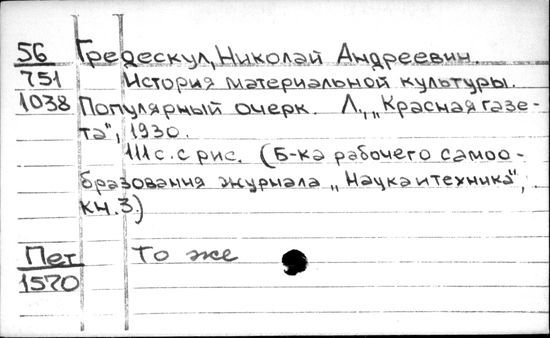 56 Гредескул, Николай Андреевич.
751 История материальной культуры.
1038 Популярный очерк. Л., „Красная газе-
та", 1930.
111 с. с рис. (Б-ка рабочего самоо-
бразования журнала „Наука и техника",
кн. 3.)
Пет То же
1570